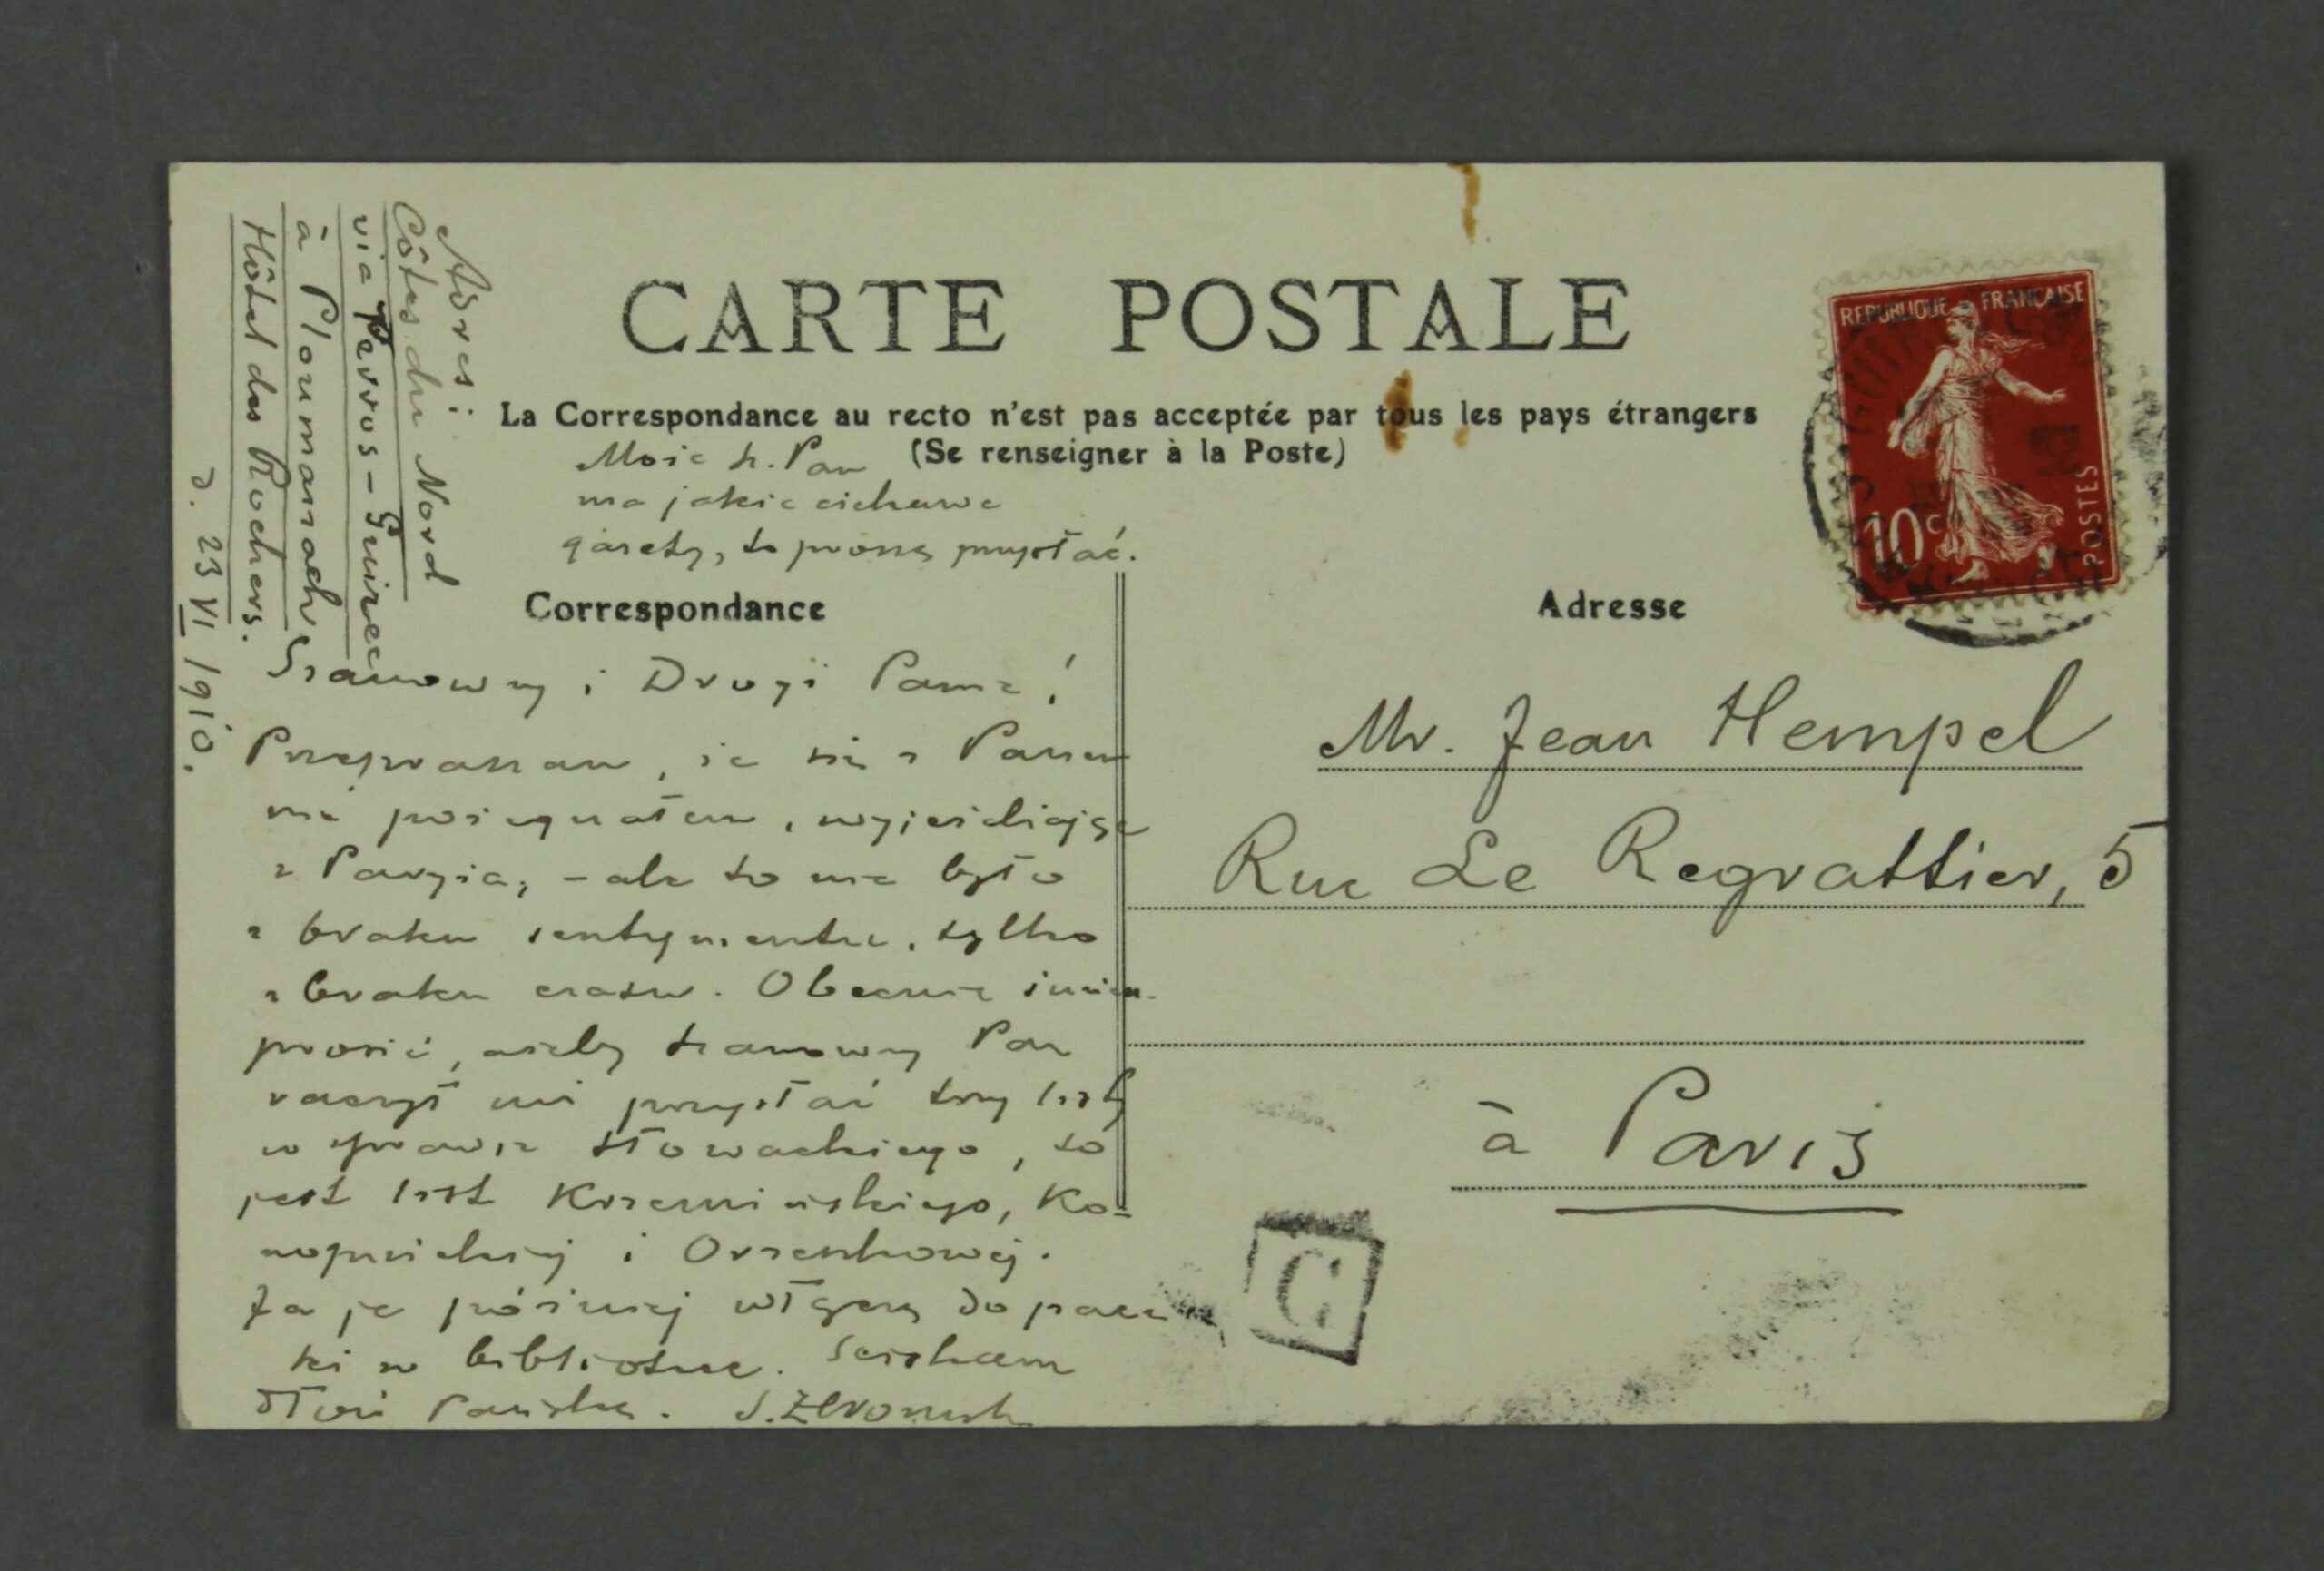 Adres:
Côtes du Nord
via Perros-Guirec
à Ploumanach,
Hôtel des Rochers.
d. 23 VI 1910.
CARTE POSTALE
La Correspondance au recto n'est pas acceptée par tous les pays étrangers
(Se renseigner à la Poste)
Może Sz. Pan
ma jakie ciekawe
gazety, to proszę przysłać.
Correspondance
Szanowny i Drogi Panie!
Przepraszam, że się z Panem
nie pożegnałem, wyjeżdżając
z Paryża, - ale to nie było
z braku sentymentu, tylko
z braku czasu. Obecnie śmiem
prosić, ażeby szanowny Pan
raczył mi przysłać trzy listy
w sprawie Słowackiego, to
jest list Krzemińskiego, Ko-
nopnickiej i Orzeszkowej.
Ja je później włączę do pacz-
ki w bibliotece. Ściskam
dłoń Pańską. S. Żeromski
REPUBLIQUE FRANÇAISE
10c
POSTES
Adresse
Mr. Jean Hempel
Rue Le Regrattier, 5
à Paris
G